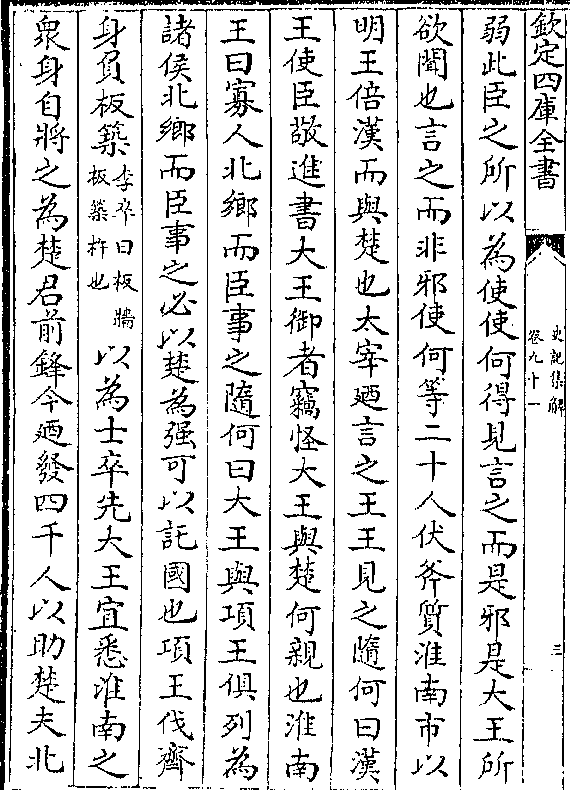 欽定四庫全書
史記集解
卷九十一
三
弱此臣之所以為使使何得見言之而是邪是大王所
欲聞也言之而非邪使何等二十人伏斧質淮南市以
明王倍漢而與楚也太宰廼言之王王見之隨何曰漢
王使臣敬進書大王御者竊怪大王與楚何親也淮南
王曰寡人北鄉而臣事之隨何曰大王與項王俱列為
諸侯北鄉而臣事之必以楚為强可以託國也項王伐齊
身負板築李奇曰板牆板築杵也以為士卒先大王宜悉淮南之
衆身自將之為楚君前鋒今廼發四千人以助楚夫北